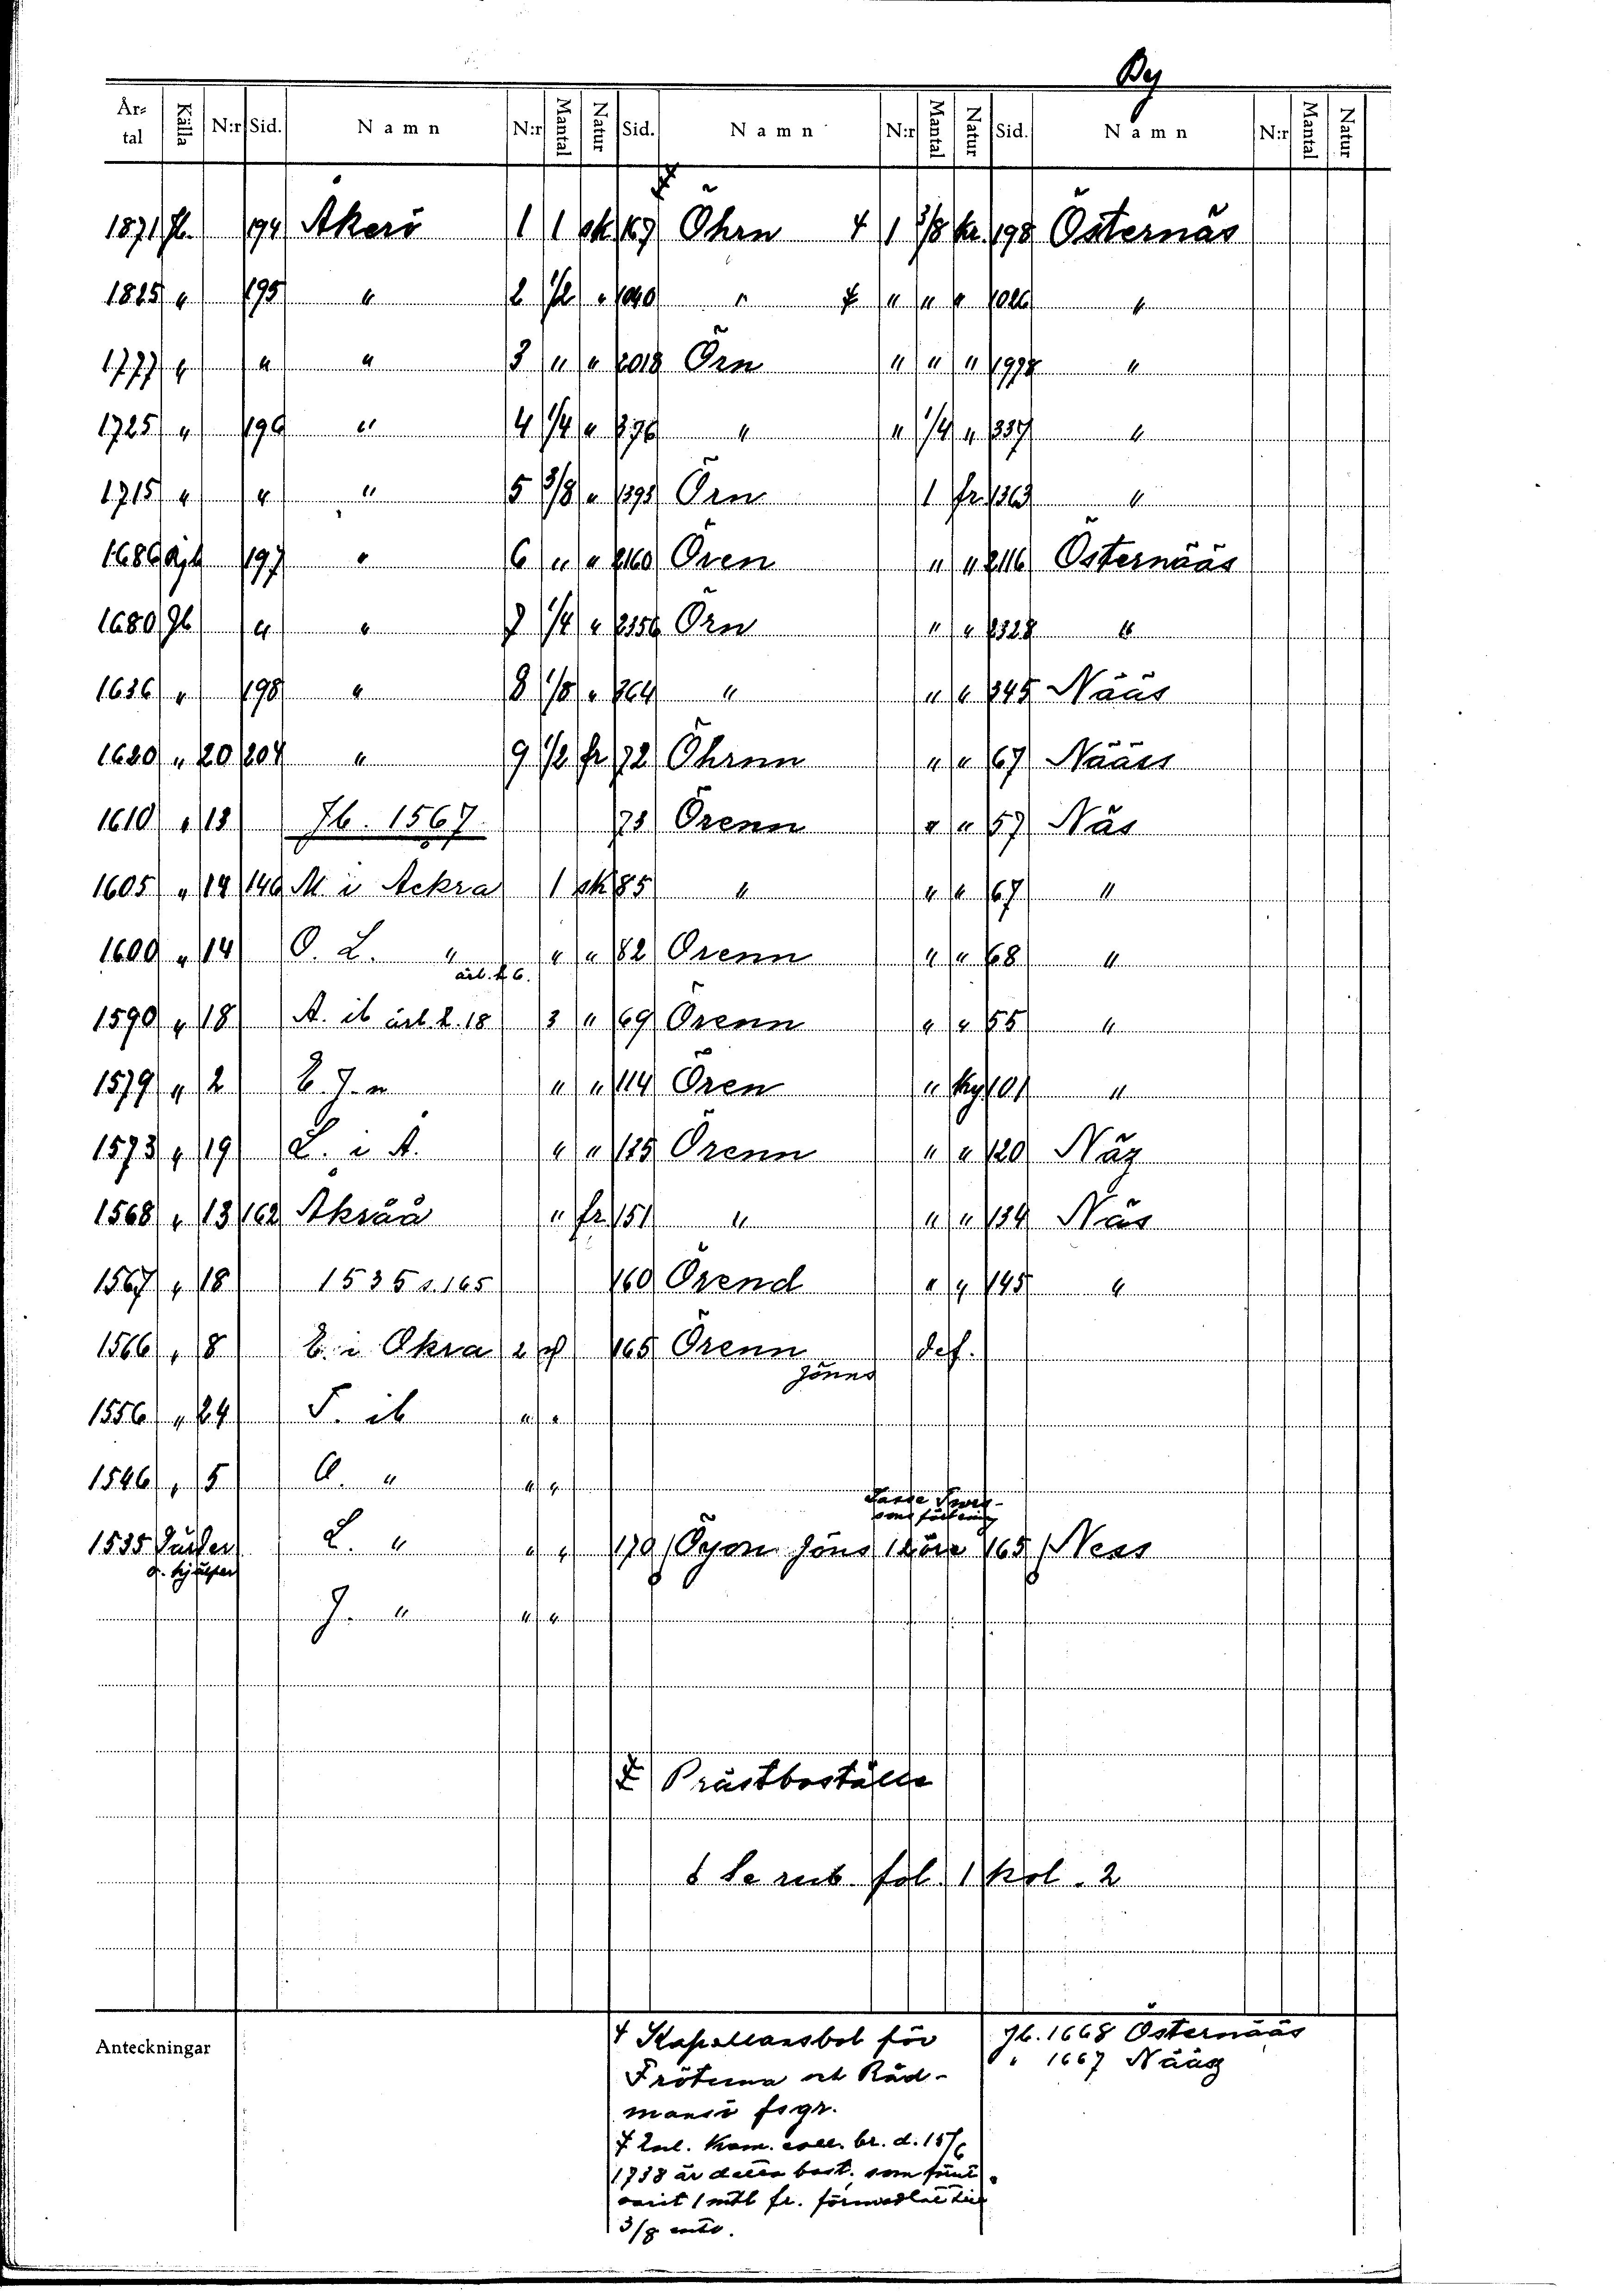 By
År-tal Källa N:r Sid. Namn N:r Mantal Natur Sid. Namn N:r Mantal Natur Sid. Namn N:r Mantal Natur
1871 Jb. 194 Åkerö 1 1 sk 187 Öhrn 4 1 3/8 kr. 198 Östernäs
1825 " 195 " 2 1/2 " 1040 " ‡ " " " 1026 "
1777 " " " 3 " " 2018 Örn " " " 1998 "
1725 " 196 " 4 1/4 " 376 " " 1/4 " 337 "
1715 " " " 5 3/8 " 1393 Örn 1 fr. 1363 "
1686 197 " 6 " " 2160 Ören " " 2116 Östernääs
1680 Jb " " 7 1/4 " 2356 Örn " " 2328 "
1636 " 198 " 8 1/8 " 364 " " " 345 Nääs
1620 " 20 204 " 9 1/2 fr 72 Öhrnn " " 67 Nääss
1610 " 13 Jb. 1567 73 Örenn " " 57 Näs
1605 " 14 146 M. i Ackra 1 sk 85 " " " 67 "
1600 " 14 O. L. " " " 82 Orenn " " 68 "
1590 " 18 A. ib 2.18 3 " 69 Örenn " " 55 "
1579 " 2 E. J-n " " 114 Ören " ky 101 "
1573 " 19 L. i A. " " 135 Örenn " " 120 Näz
1568 " 13 162 Åkråå " fr. 151 " " " 134 Näs
1567 " 18 1535 s. 165 160 Örend " " 145 "
1566 " 8 E. i Okra 165 Örenn def.
Jönns
1556 " 24 T. ib " "
1546 " 5 O. " " "
1535 L. " " " 170 Öyon Jöns 165 Ness
o. hjälper
J. " " "
‡ Prästboställe
§ Se rub. fol. 1 kol. 2
Anteckningar
‡ Kapellansbol för
Frötuna och Råd-
mansö fsgr.
‡ Enl. Kam. coll. br. d. 15/6
1738 är detta bost. som förut
varit 1 mtl fr. förmedlat till
3/8 mtl.
Jb. 1668 Östernääs
" 1667 Nääs